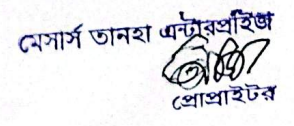 মেসার্স তানহা এন্টারপ্রাইজ
প্রোপ্রাইটর